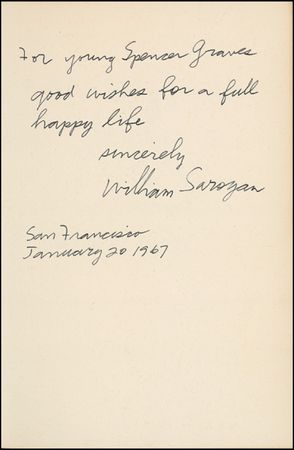 For young Spencer Graves
good wishes for a full
happy life
sincerely
William Saroyan
San Francisco
January 20 1967